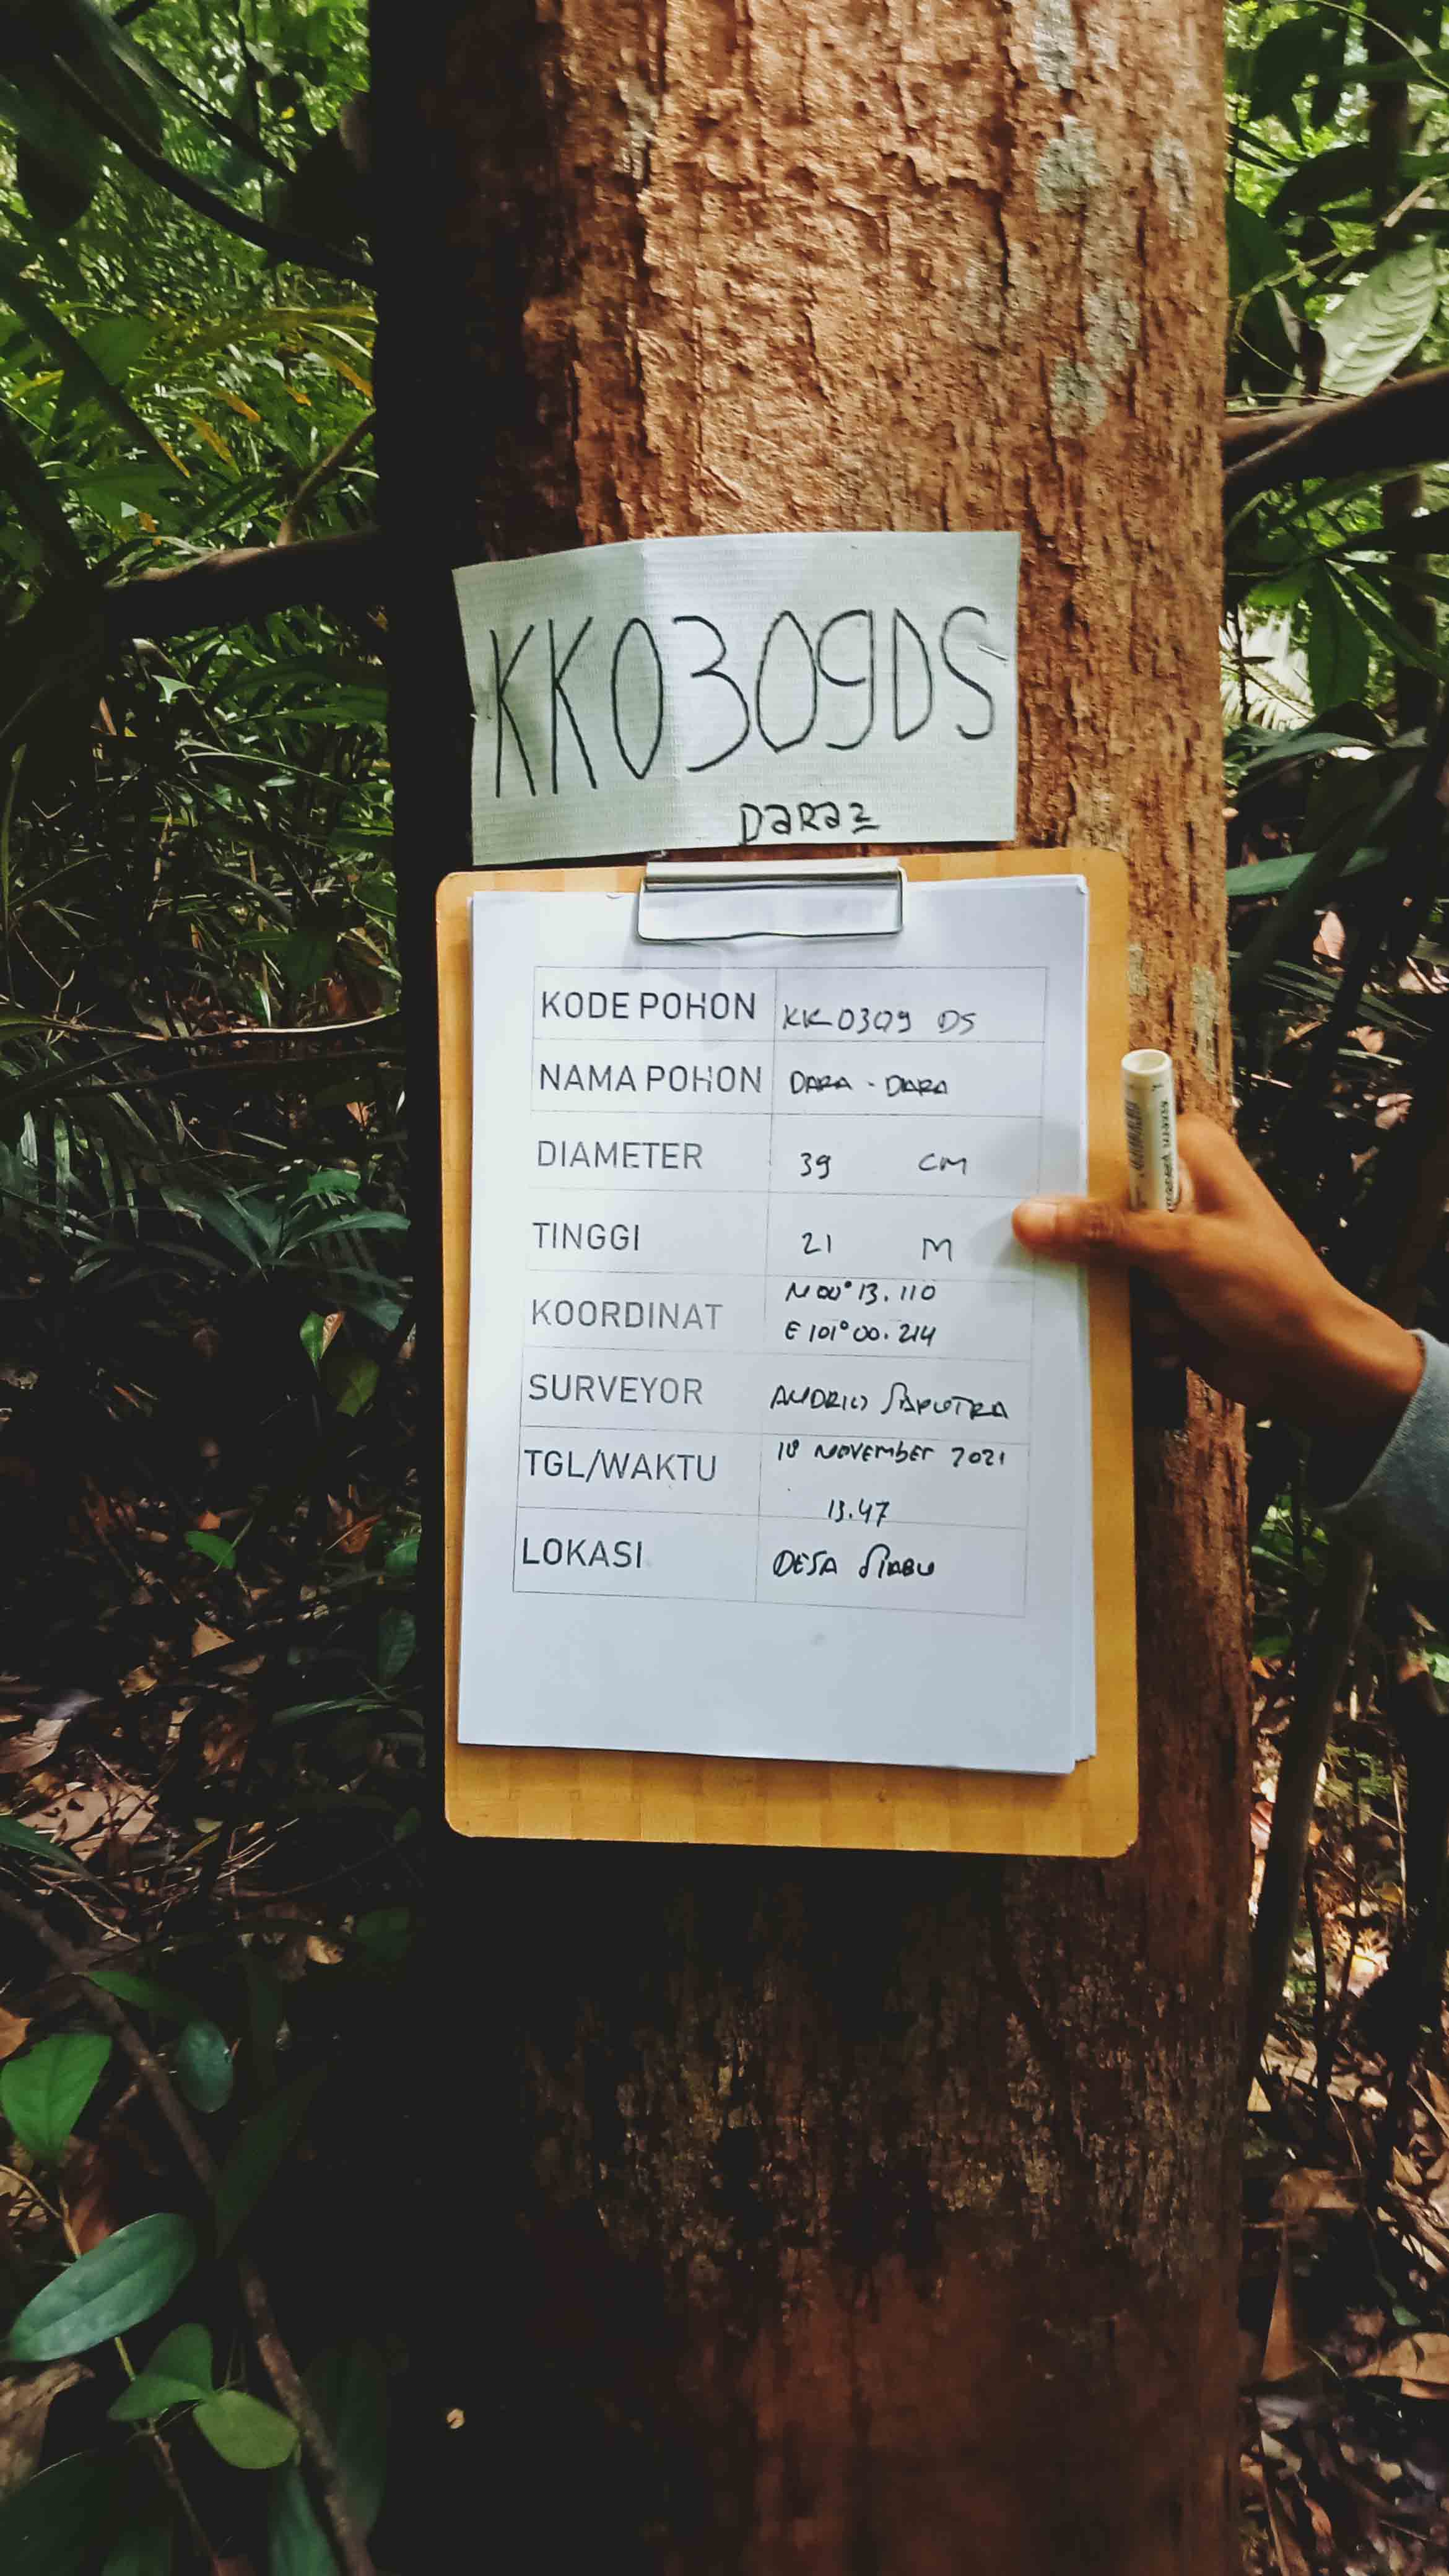 KK0309DS
DaRa2
KODE POHON KK0309 DS
NAMA POHON DARA - DARA
DIAMETER 39 CM
TINGGI 21 M
KOORDINAT N 00° 13.110
E 101° 00.214
SURVEYOR SAPUTRA
TGL/WAKTU 18 NOVEMBER 2021
13.47
LOKASI DESA SIABU